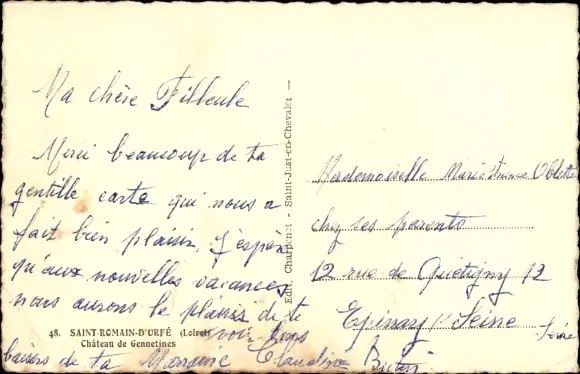 Ma chère Filleule
Merci beaucoup de ta
gentille carte qui nous a
fait bien plaisir, j'espère
qu'aux nouvelles vacances
nous aurons le plaisir de te
voir
baisers de ta Marraine Claudine
48. SAINT-ROMAIN-D'URFÉ (Loire)
Château de Gennetines
Edit. Charpenet - Saint-Just-en-Chevalet -
Mademoiselle Marie
chez ses parents
12 rue de Quetigny 12
Epinay s/ Seine
Seine